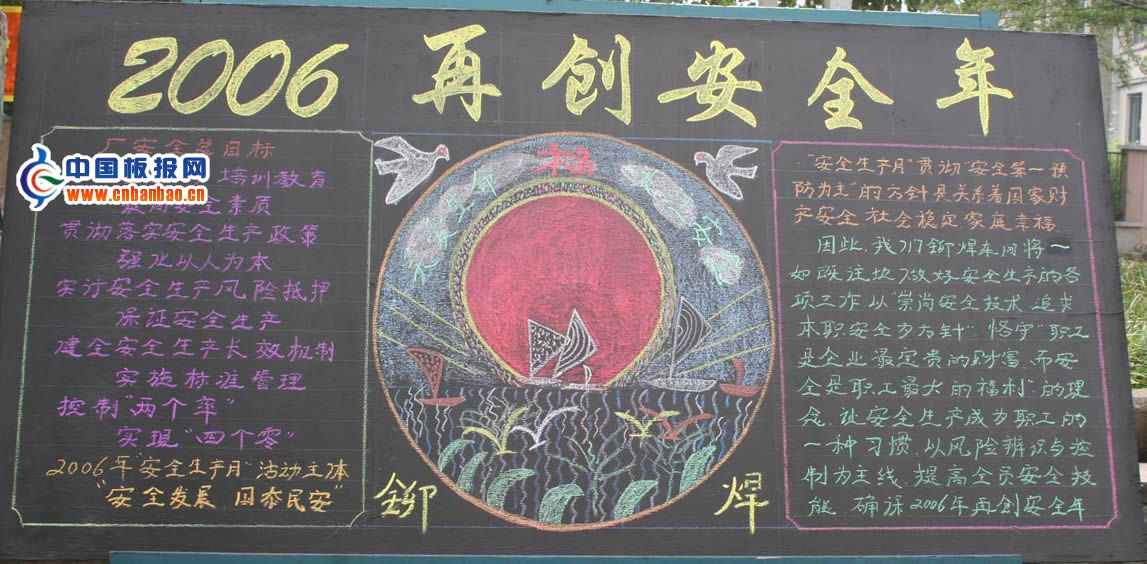 2006 再创安全年
厂安全总目标
中国板报网
www.cnbanbao.cn
培训教育
提高安全素质
贯彻落实安全生产政策
强化以人为本
实行安全生产风险抵押
保证安全生产
建全安全生产长效机制
实施标准管理
控制"两个率"
实现"四个零"
2006年"安全生产月"活动主体
"安全发展 国泰民安"
福
铆
焊
"安全生产月"贯彻"安全第一预
防为主"的方针是关系着国家财
产安全 社会稳定家庭幸福
因此,我们铆焊车间将一
如既往地做好安全生产的各
项工作 以"崇尚安全技术 追
本职安全为方针" 恪守"职工
是企业最宝贵的财富,而安
全是职工最大的福利"的理
念,让安全生产成为职工的
一种习惯,以风险辨识与控
制为主线,提高全员安全技
能 确保2006年再创安全年